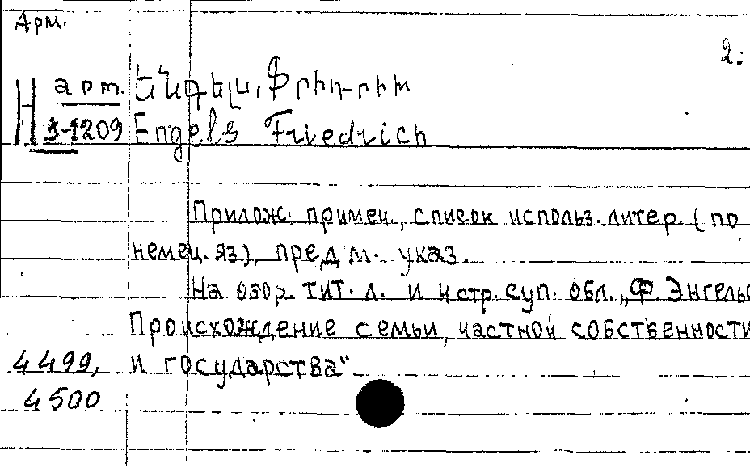 Арм.
2.
арт. Ենգելս, Ֆրիդրիխ
Н 3-1209 Engels Friedrich
Прилож. примеч., список использ. литер. (по
немец. яз), предм. указ.
На обор. тит. л. и 4 стр. суп. обл. „Ф. Энгельс
Происхождение семьи, частной собственности
4499, и государства“
4500